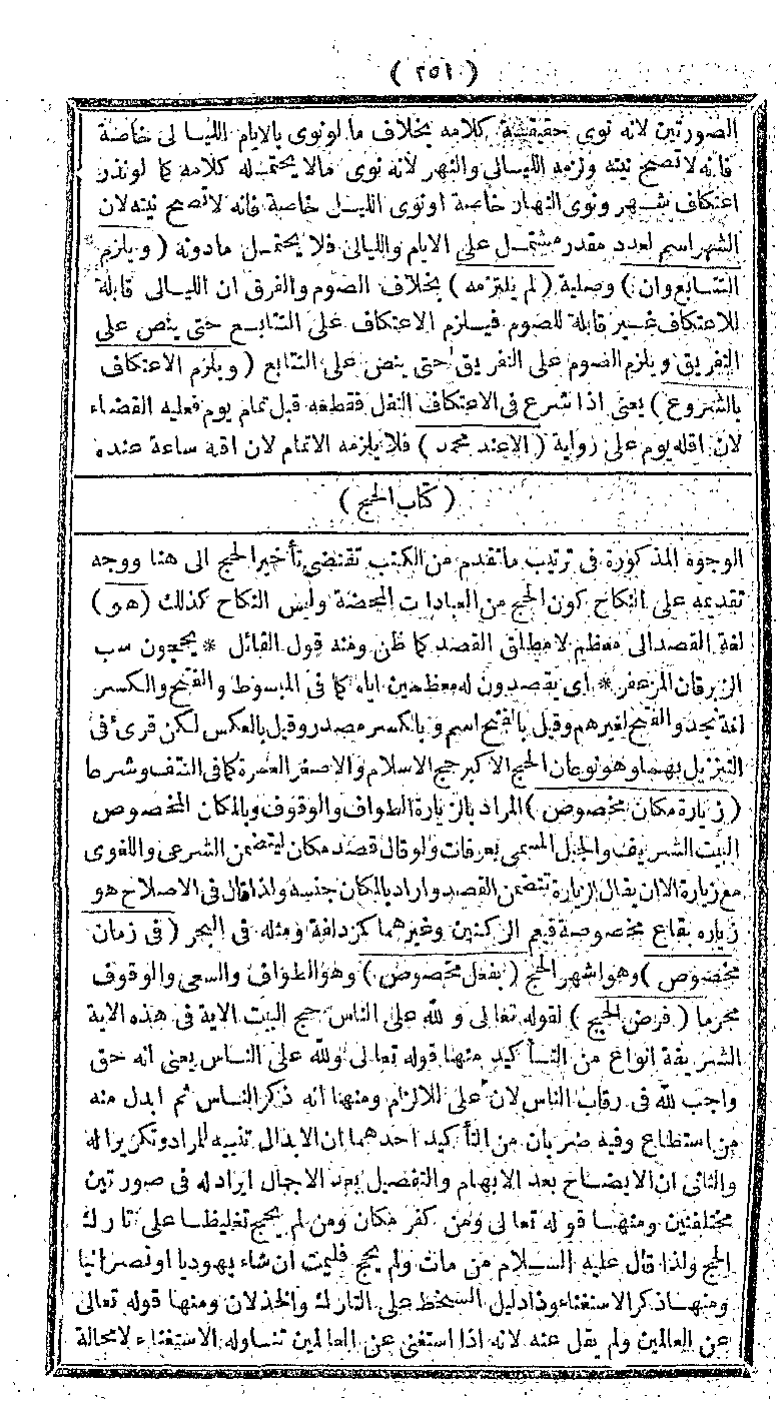 ( ٢٥١ )
الصورتين لانه نوى حقيقة كلامه بخلاف ما لو نوى بالايام الليالى خاصة
فانه لا تصح نيته ولزمه الليالى والنهر لانه نوى مالا يحتمله كلامه كما لو نذر
اعتكاف شهر ونوى النهار خاصة او نوى الليل خاصة فانه لا تصح نيته لان
الشهر اسم لعدد مقدر مشتمل على الايام والليالى فلا يحتمل مادونه ( ويلزم
التتابع وان ) وصلية ( لم يلتزمه ) بخلاف الصوم والفرق ان الليالى قابلة
للاعتكاف غير قابلة للصوم فيلزم الاعتكاف على التتابع حتى ينص على
التفريق ويلزم الصوم على التفريق حتى ينص على التتابع ( ويلزم الاعتكاف
بالشروع ) يعنى اذا شرع فى الاعتكاف النفل فقطعه قبل تمام يوم فعليه القضاء
لان اقله يوم على رواية ( الاعند محمد ) فلا يلزمه الاتمام لان اقله ساعة عنده
( كتاب الحج )
الوجوه المذكورة فى ترتيب ماتقدم من الكتب تقتضى تأخير الحج الى هنا ووجه
تقديمه على النكاح كون الحج من العبادات المحضة وليس النكاح كذلك ( هو )
لغة القصد الى معظم لا مطلق القصد كما ظن ومنه قول القائل * يحجون سب
الزبرقان المزعفر * اى يقصدون له معظمين اياه كما فى المبسوط والفتح والكسر
لغة نجد والفتح لغيرهم وقيل بالفتح اسم وبالكسر مصدر وقيل بالعكس لكن قرىء فى
التنزيل بهما وهو نوعان الحج الاكبر حج الاسلام والاصغر العمرة كما فى النتف وشرعا
( زيارة مكان مخصوص ) المراد بالزيارة الطواف والوقوف وبالمكان المخصوص
البيت الشريف والجبل المسمى بعرفات ولو قال قصد مكان ليتضمن الشرعى واللغوى
مع زيارة الا ان يقال الزيارة تتضمن القصد واراد بالمكان جنسه ولذا قال فى الاصلاح هو
زياره بقاع مخصوصة فيعم الركنين وغيرهما كمزدلفة ومثله فى البحر ( فى زمان
مخصوص ) وهو اشهر الحج ( بفعل مخصوص ) وهو الطواف والسعى والوقوف
محرما ( فرض الحج ) لقوله تعالى و لله على الناس حج البيت الاية فى هذه الاية
الشريفة انواع من التأكيد منها قوله تعالى ولله على الناس يعنى انه حق
واجب لله فى رقاب الناس لان على للالزام ومنها انه ذكر الناس ثم ابدل منه
من استطاع وفيه ضربان من التأكيد احدهما ان الابدال تنبيه للمراد وتكرير له
والثانى ان الايضاح بعد الابهام والتفصيل بعد الاجمال ايراد له فى صورتين
مختلفتين ومنها قوله تعالى ومن كفر مكان ومن لم يحج تغليظا على تارك
الحج ولذا قال عليه السلام من مات ولم يحج فليمت ان شاء يهوديا او نصرانيا
ومنها ذكر الاستغناء وذا دليل السخط على التارك والخذلان ومنها قوله تعالى
عن العالمين ولم يقل عنه لانه اذا استغنى عن العالمين تناوله الاستغناء لامحالة